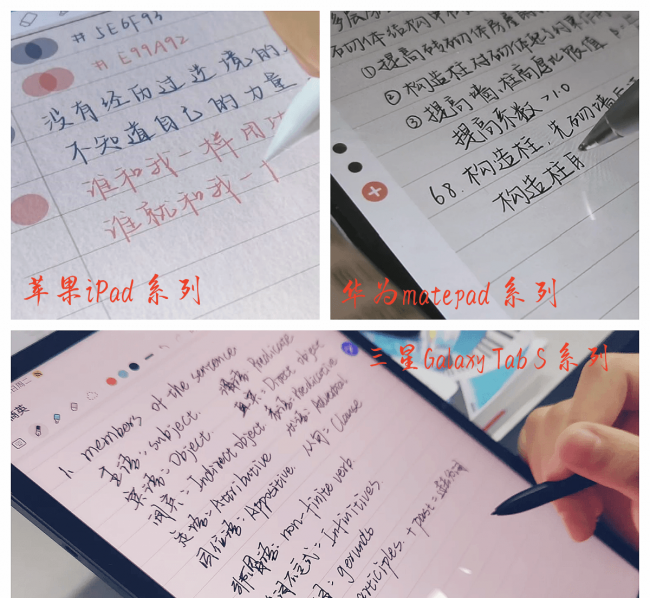 #5E6F93
#E99A92
没有经历过逆境的
不知道自己的力量
谁和我一样用功
谁就和我一
苹果iPad系列
砌体结构中
①提高砖砌体房屋
②构造柱对砌体起约束作用
③提高墙、柱高厚比限值
提高系数>1.0
68.构造柱,先砌墙后
构造柱
华为matepad系列
三星Galaxy Tab S系列
1、members of the sentence
主语:subject. 谓语:Predicate
宾语:Object. 直宾:Direct object
间宾:Indirect object. 表语:Predicative
定语:Attributive 状语:Adverbial
同位语:Appositive. 从句:Clause
非谓语:non-finite verb.
动词不定式:Infinitives
gerund
participles. + past